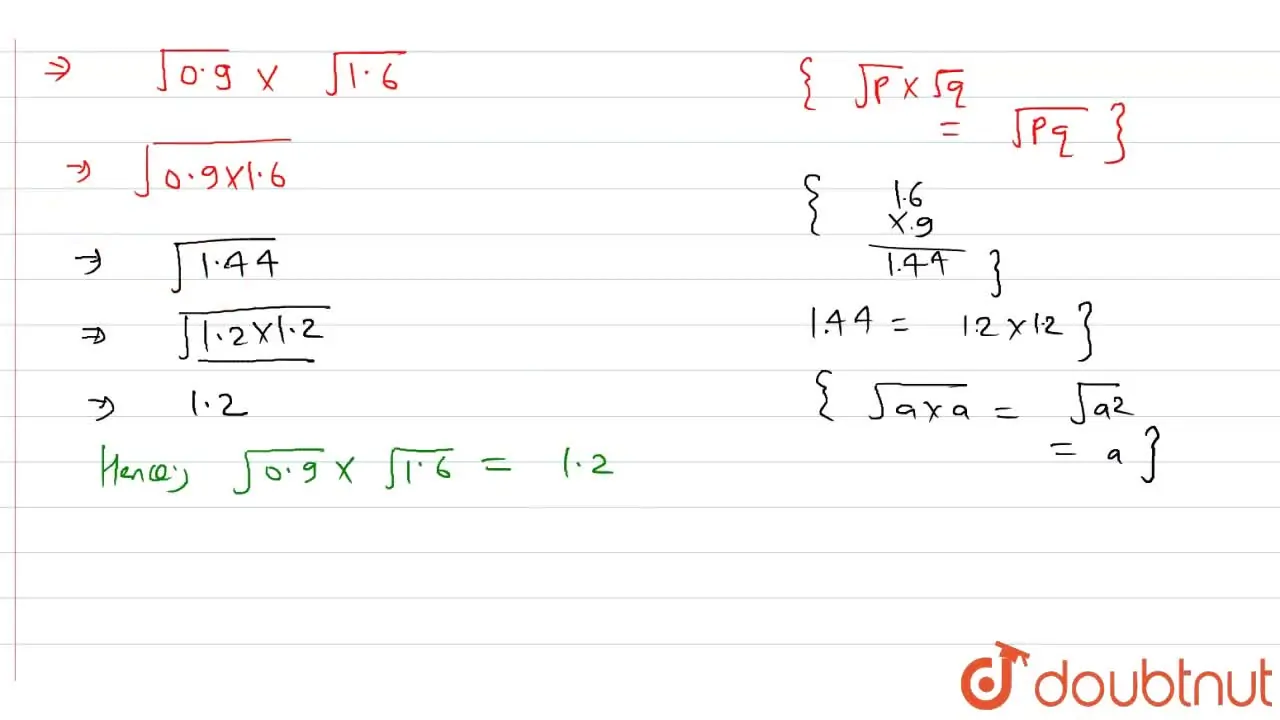 ⇒ √0.9 × √1.6
⇒ √0.9×1.6
⇒ √1.44
⇒ √1.2×1.2
⇒ 1.2
Hence; √0.9 × √1.6 = 1.2
{ √p × √q
= √pq }
{ 1.6
×.9
1.44 }
1.44 = 1.2 × 1.2 }
{ √a×a = √a²
= a }
doubtnut